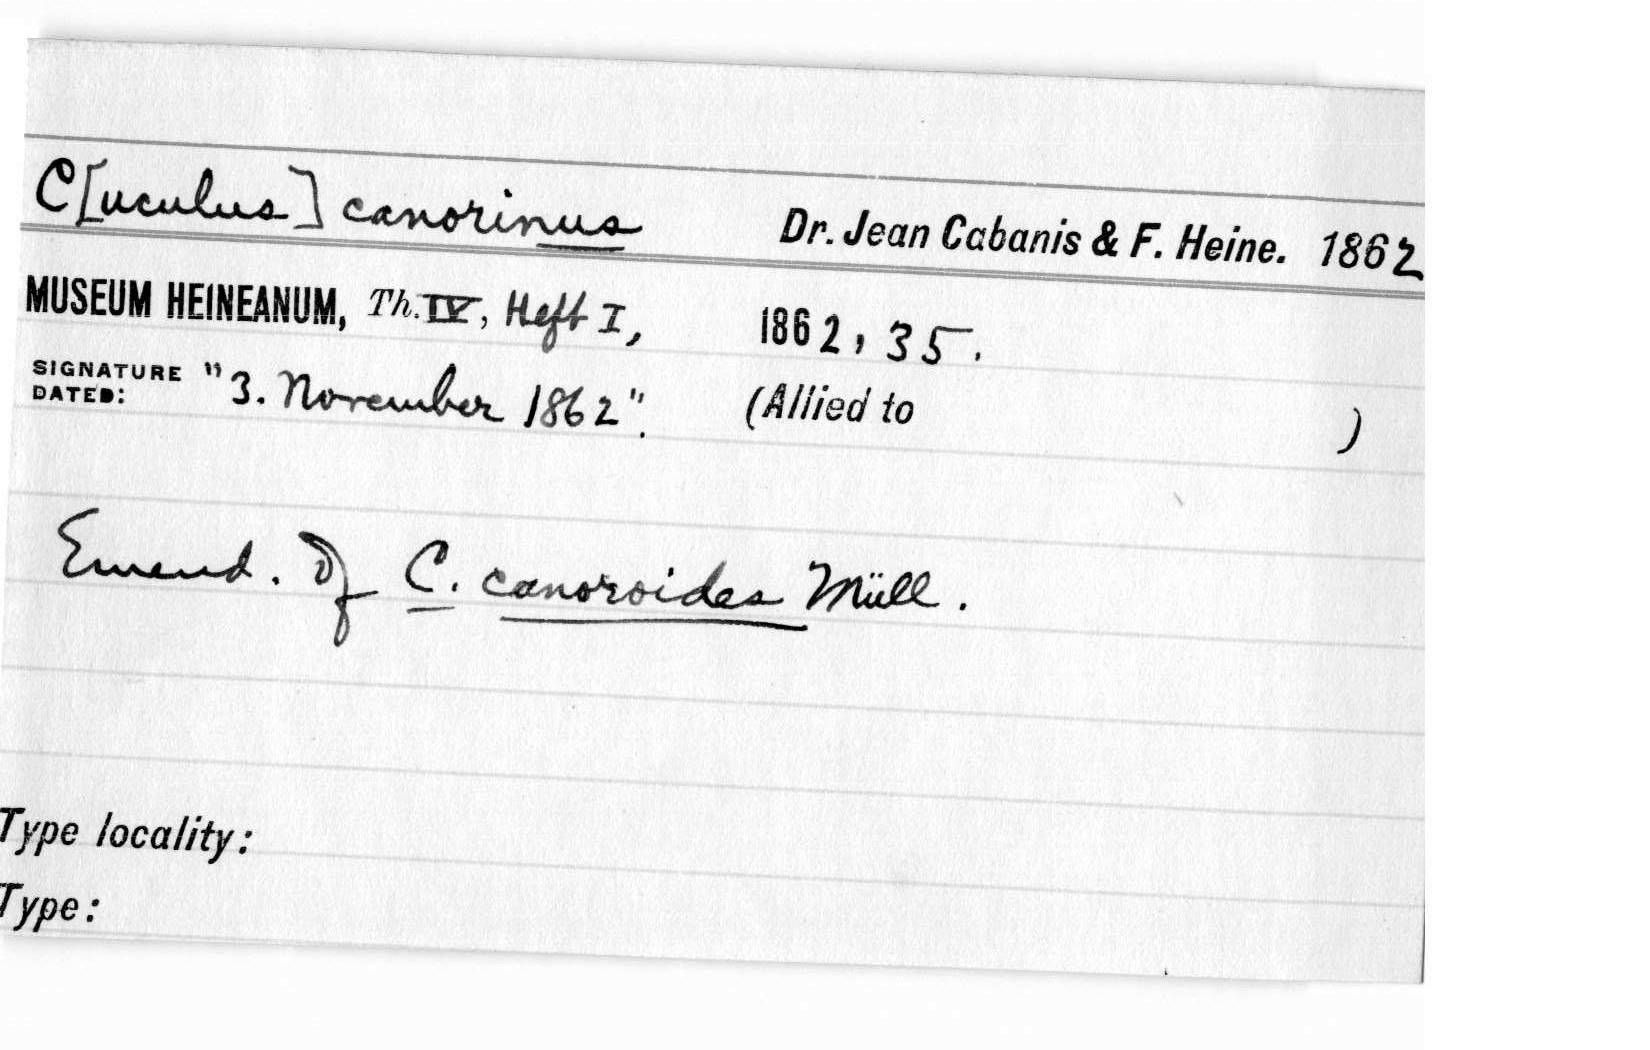 C[uculus] canorinus Dr. Jean Cabanis & F. Heine. 1862
MUSEUM HEINEANUM, Th. IV, Heft I, 1862, 35.
SIGNATURE DATED: "3. November 1862". (Allied to )
Emend. of C. canoroides Müll.
Type locality:
Type: